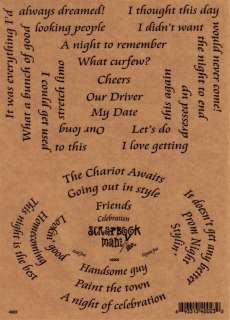 always dreamed!
looking people
I thought this day
I didn't want
A night to remember
What curfew?
Cheers
Our Driver
My Date
Let's do
to this
I love getting
It was everything I'd
What a bunch of good
I could get used
stretch limo
Our long
this again
all dressed up
the night to end
would never come!
The Chariot Awaits
Going out in style
Friends
Celebration
SCRAPBOOK
MANIA
Handsome guy
Paint the town
A night of celebration.
This night is the best
Homecoming
Lookin' good
It doesn't get any better
Prom Night
Stylin'